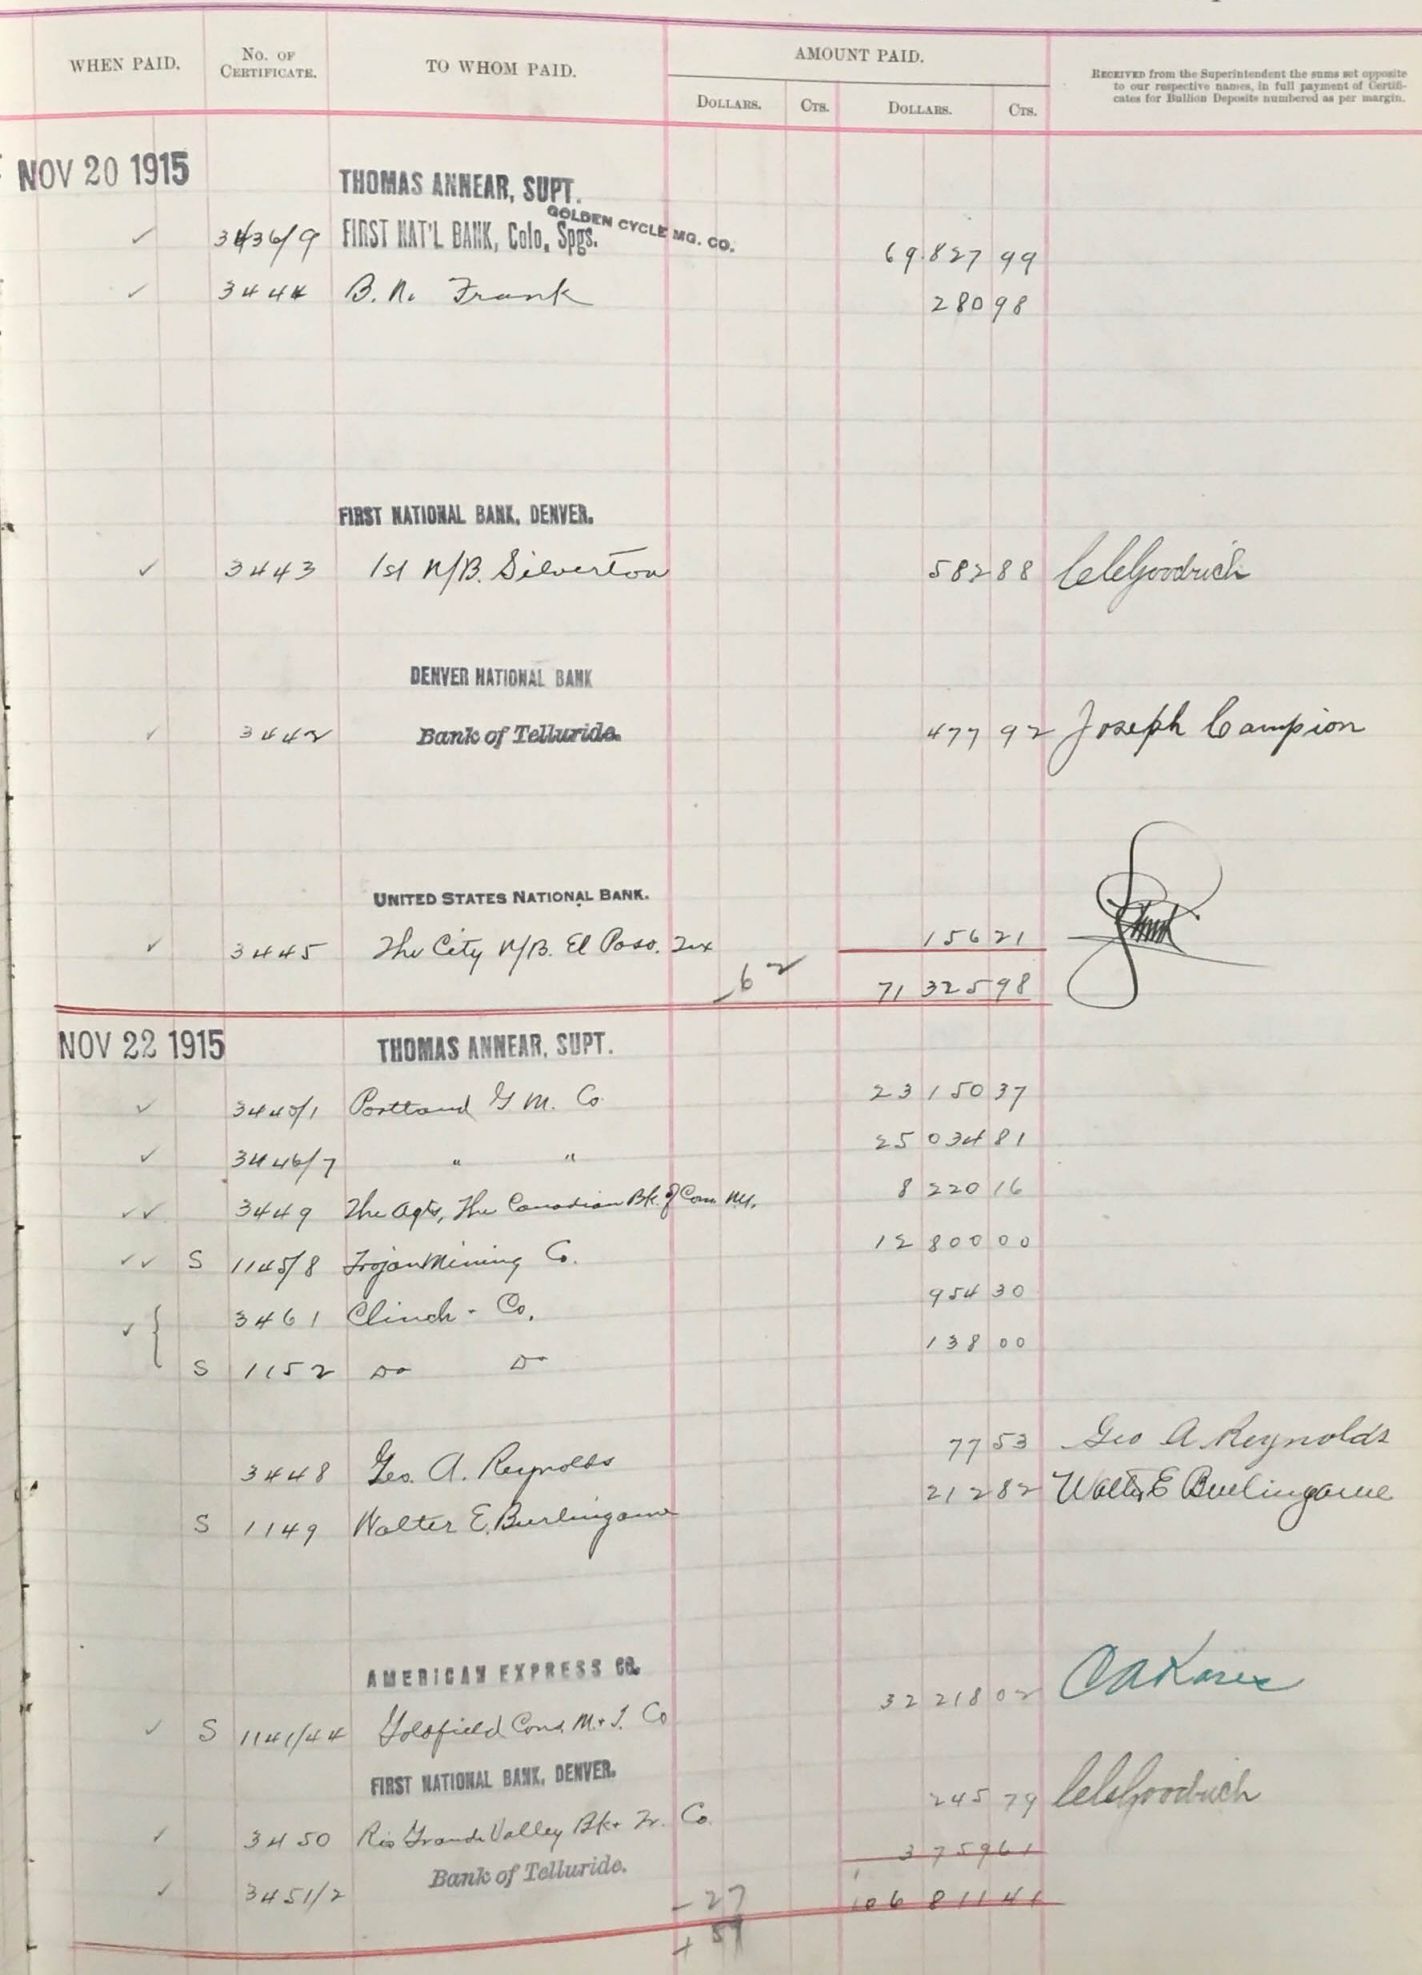 WHEN PAID. No. of Certificate. TO WHOM PAID. AMOUNT PAID.
Dollars. Cts. Dollars. Cts.
Received from the Superintendent the sums set opposite
to our respective names, in full payment of Certifi-
cates for Bullion Deposits numbered as per margin.
NOV 20 1915 THOMAS ANNEAR, SUPT.
GOLDEN CYCLE MG. CO.
✓ 3436/9 FIRST NAT'L BANK, Colo, Spgs. 69.827 99
✓ 3444 B. N. Frank 280 98
FIRST NATIONAL BANK, DENVER.
✓ 3443 1st N/B. Silverton 582 88 CCGoodrich
DENVER NATIONAL BANK
✓ 3442 Bank of Telluride. 477 92 Joseph Campion
United States National Bank.
✓ 3445 The City N/B. El Paso. Tex 156 21
-62 71 325 98
NOV 22 1915 THOMAS ANNEAR, SUPT.
✓ 3440/1 Portland G M. Co. 23 150 37
✓ 3446/7 " " 25 034 81
✓✓ 3449 The Agts, The Canadian Bk. of Com. N.Y. 8 220 16
✓✓ S 1145/8 Trojan Mining Co. 12 800 00
✓ { 3461 Clinch - Co. 954 30
S 1152 Do Do 138 00
3448 Geo. A. Reynolds 77 53 Geo A Reynolds
S 1149 Walter E. Burlingame 212 82 Walter E Burlingame
AMERICAN EXPRESS CO.
✓ S 1141/44 Goldfield Cons M. & T. Co 32 218 02
FIRST NATIONAL BANK, DENVER.
✓ 3450 Rio Grande Valley Bk & Tr. Co. 245 79 CCGoodrich
✓ 3451/2 Bank of Telluride. 3 759 61
-27 106 811 41
+ 59